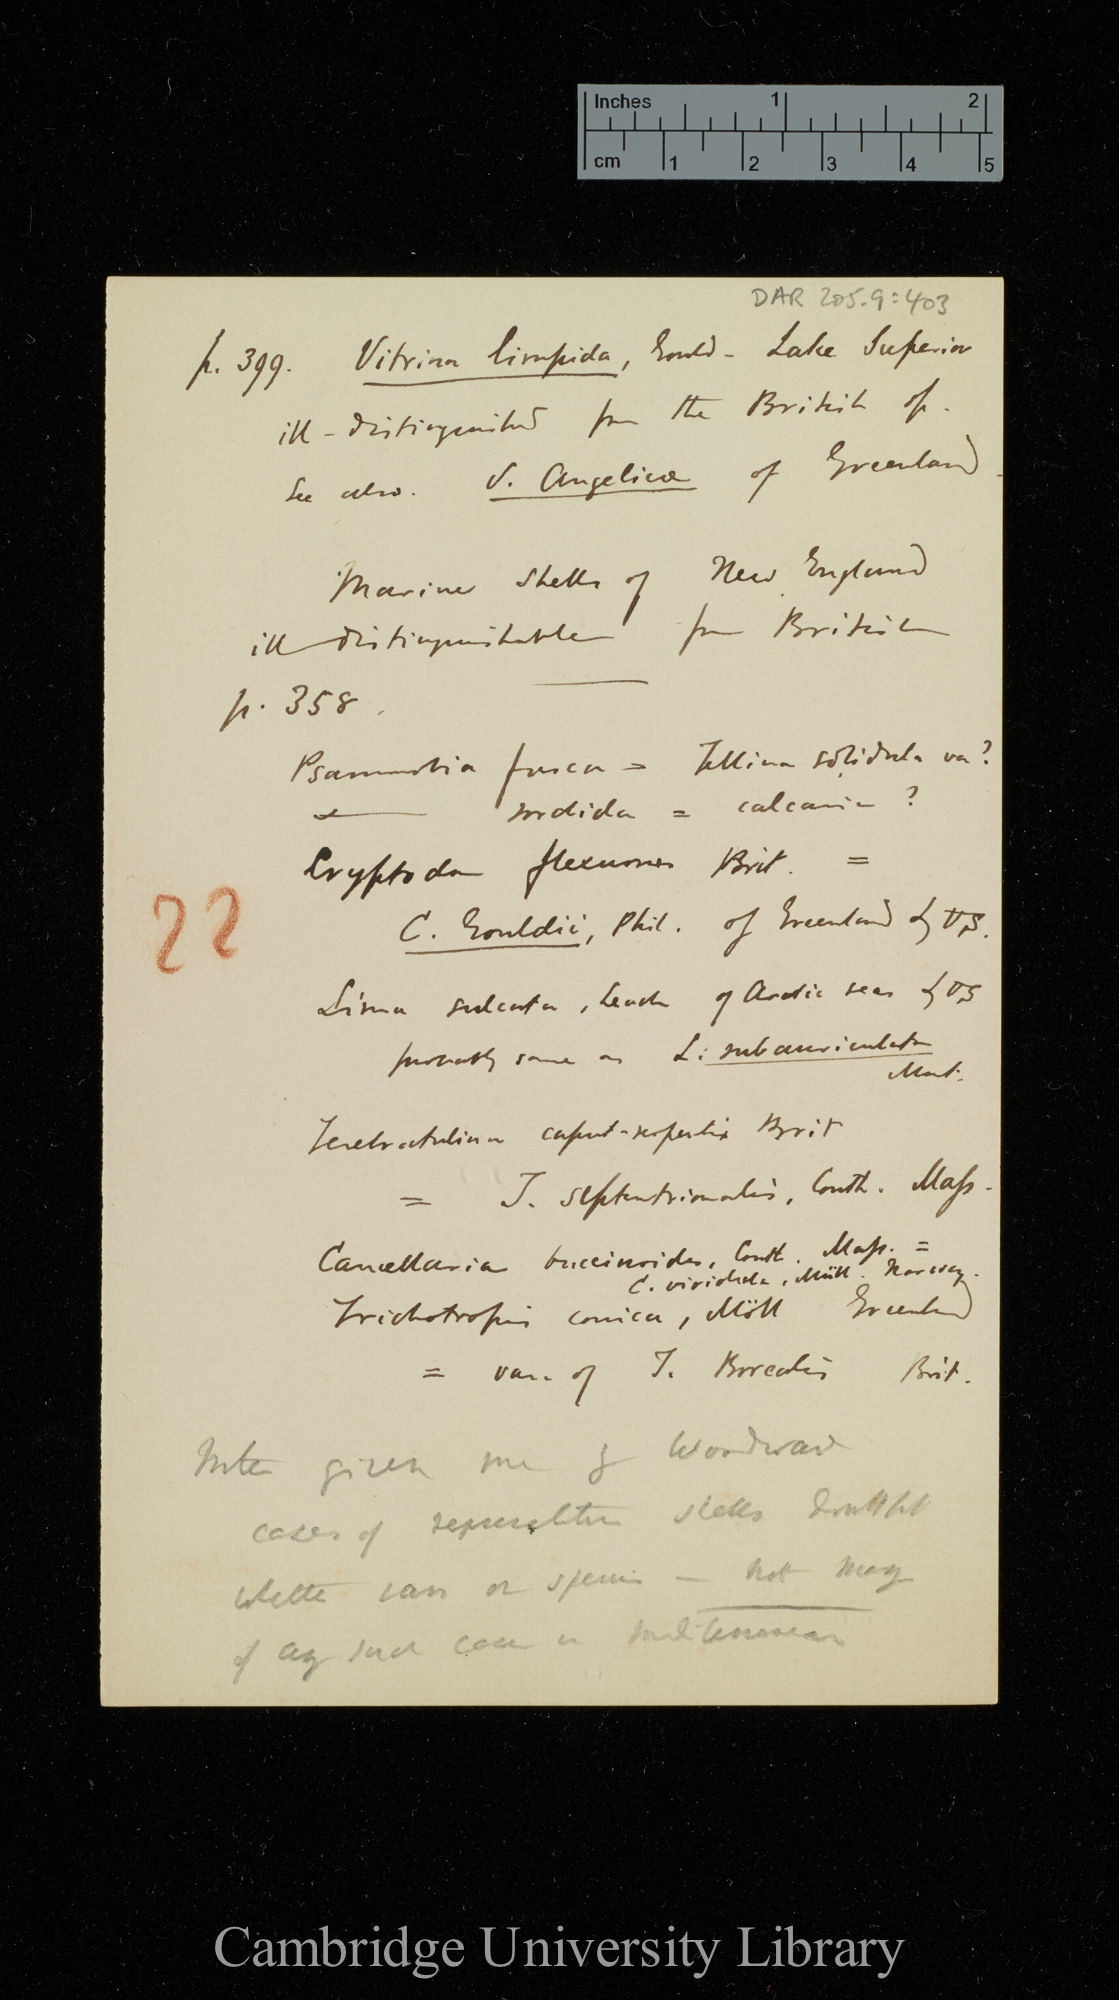 Inches 1 2
cm 1 2 3 4 5
DAR 205.9:403
p. 399. Vitrina limpida, Gould - Lake Superior
ill-distinguished from the British sp.
See also. V. Angelicæ of Greenland
Marine shells of New England
ill distinguishable from British
p. 358.
Psammobia fusca = Tellina solidula var?
— sordida = calcaria ?
Cryptodon flexuosus Brit. =
22
C. Gouldii, Phil. of Greenland & US.
Lima sulcata, Leach of Arctic seas & US
probably same as L. subauriculata
Mont.
Terebratulina caput-serpentis Brit
= T. septentrionalis, Couth. Mass.
Cancellaria buccinoides, Couth. Mass. =
C. viridula, Müll. Norway.
Trichotropis conica, Möll Greenland
= var. of T. Borealis Brit.
Notes given me by Woodward
cases of representative shells doubtful
whether vars or species — not many
of any such cases in Mediterranean
Cambridge University Library